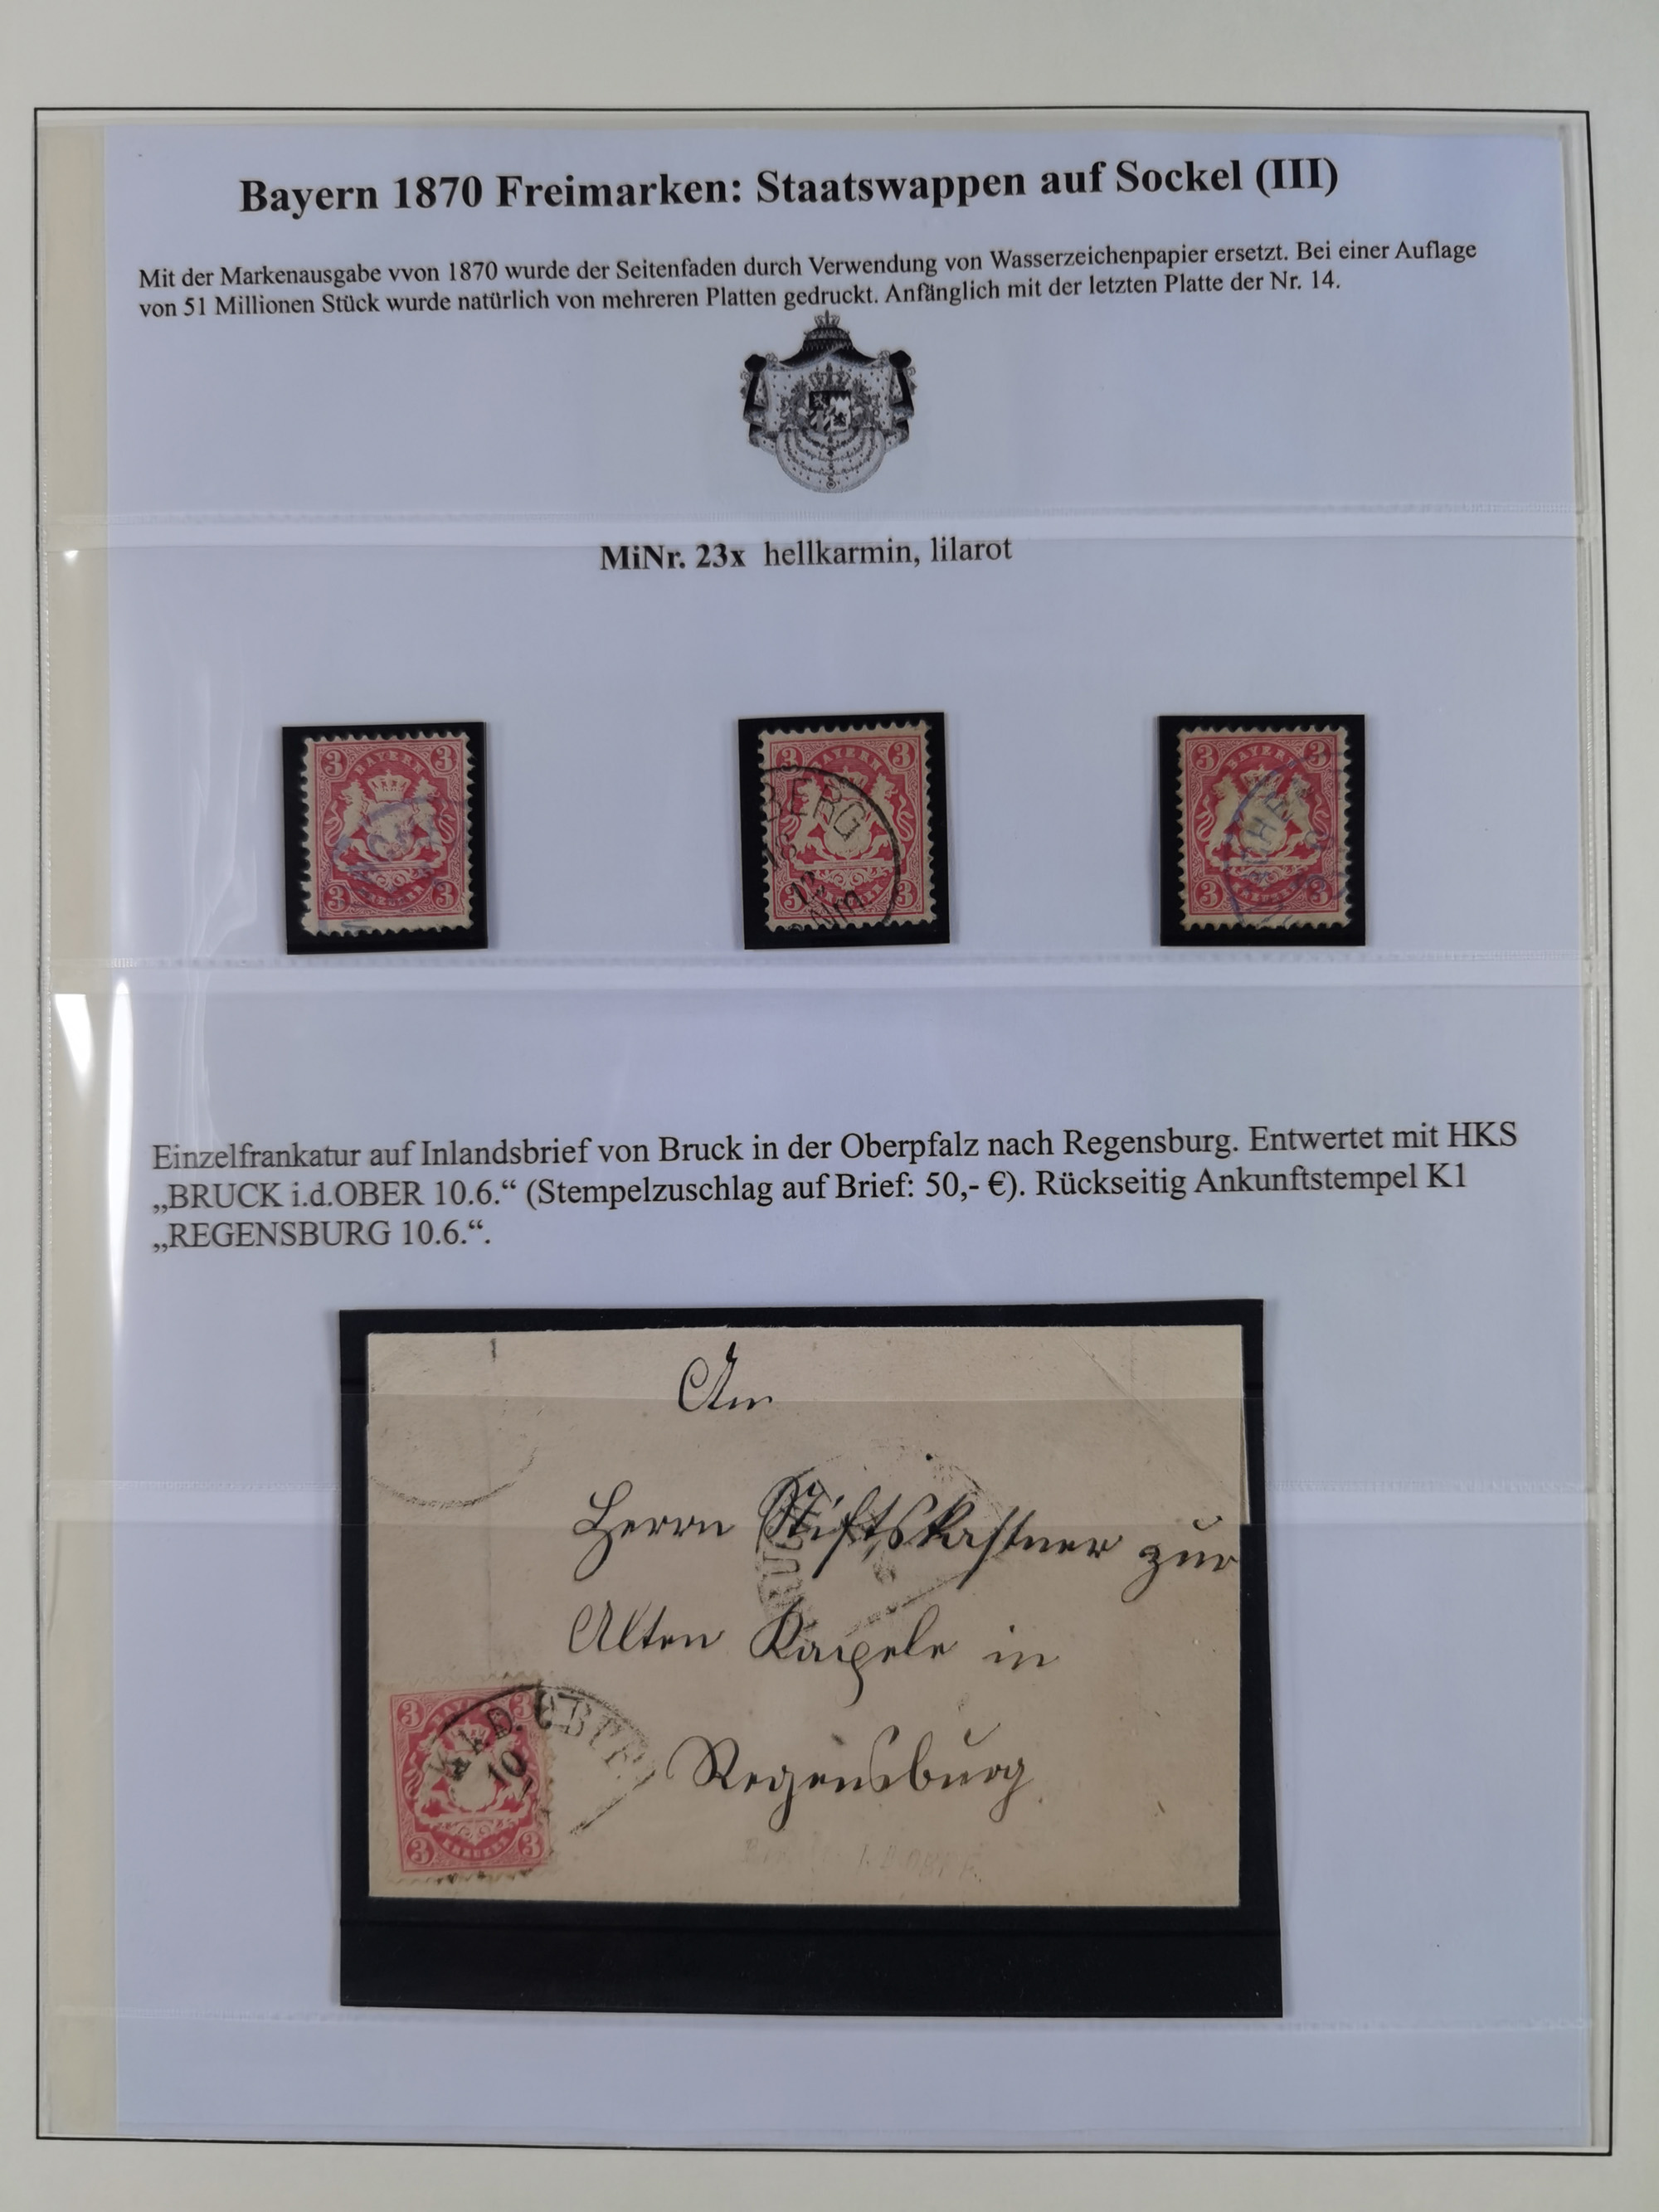 Bayern 1870 Freimarken: Staatswappen auf Sockel (III)
Mit der Markenausgabe vvon 1870 wurde der Seitenfaden durch Verwendung von Wasserzeichenpapier ersetzt. Bei einer Auflage
von 51 Millionen Stück wurde natürlich von mehreren Platten gedruckt. Anfänglich mit der letzten Platte der Nr. 14.
MiNr. 23x hellkarmin, lilarot
3 BAYERN 3
3 3
3 BAYERN 3
BERG
12
NM
3 3
3 BAYERN 3
3 3
Einzelfrankatur auf Inlandsbrief von Bruck in der Oberpfalz nach Regensburg. Entwertet mit HKS
„BRUCK i.d.OBER 10.6.“ (Stempelzuschlag auf Brief: 50,- €). Rückseitig Ankunftstempel K1
„REGENSBURG 10.6.“.
An
Herrn Stiftskastner zur
Alten Kapele in
Regensburg
3 BAYERN 3
10
3 KREUZER 3